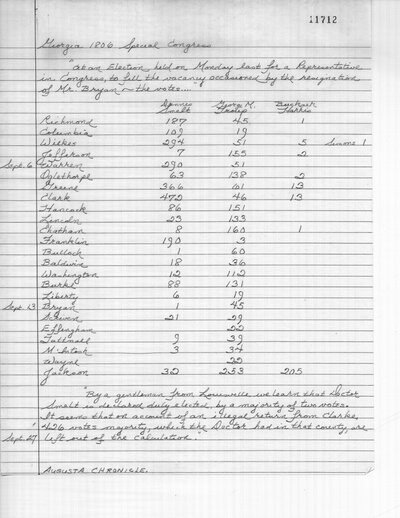 11712
Georgia 1806 Special Congress
"At an Election held on Monday last for a Representative
in Congress, to fill the vacancy occasioned by the resignation
of Mr. Bryan — the votes....
Dennis Smelt George M. Troup Buckner Harris
Richmond 187 45 1
Columbia 109 19
Wilkes 294 51 5 Simone 1
Jefferson 7 155 2
Sept. 6 Warren 290 51
Oglethorpe 63 138 2
Greene 366 101 13
Clark 472 46 13
Hancock 86 151
Lincoln 23 133
Chatham 8 160 1
Franklin 190 3
Bulloch 1 60
Baldwin 18 36
Washington 12 112
Burke 88 131
Liberty 6 19
Sept. 13 Bryan 1 45
Scriven 21 29
Effingham 22
Tattnall 9 39
McIntosh 3 34
Wayne 20
Jackson 32 253 205
"By a gentleman from Louisville we learn that Doctor
Smelt is declared duly elected, by a majority of two votes.
It seems that on account of an illegal return from Clarke,
426 votes majority, which the Doctor had in that county, are
Sept. 27 left out of the calculation."
AUGUSTA CHRONICLE.